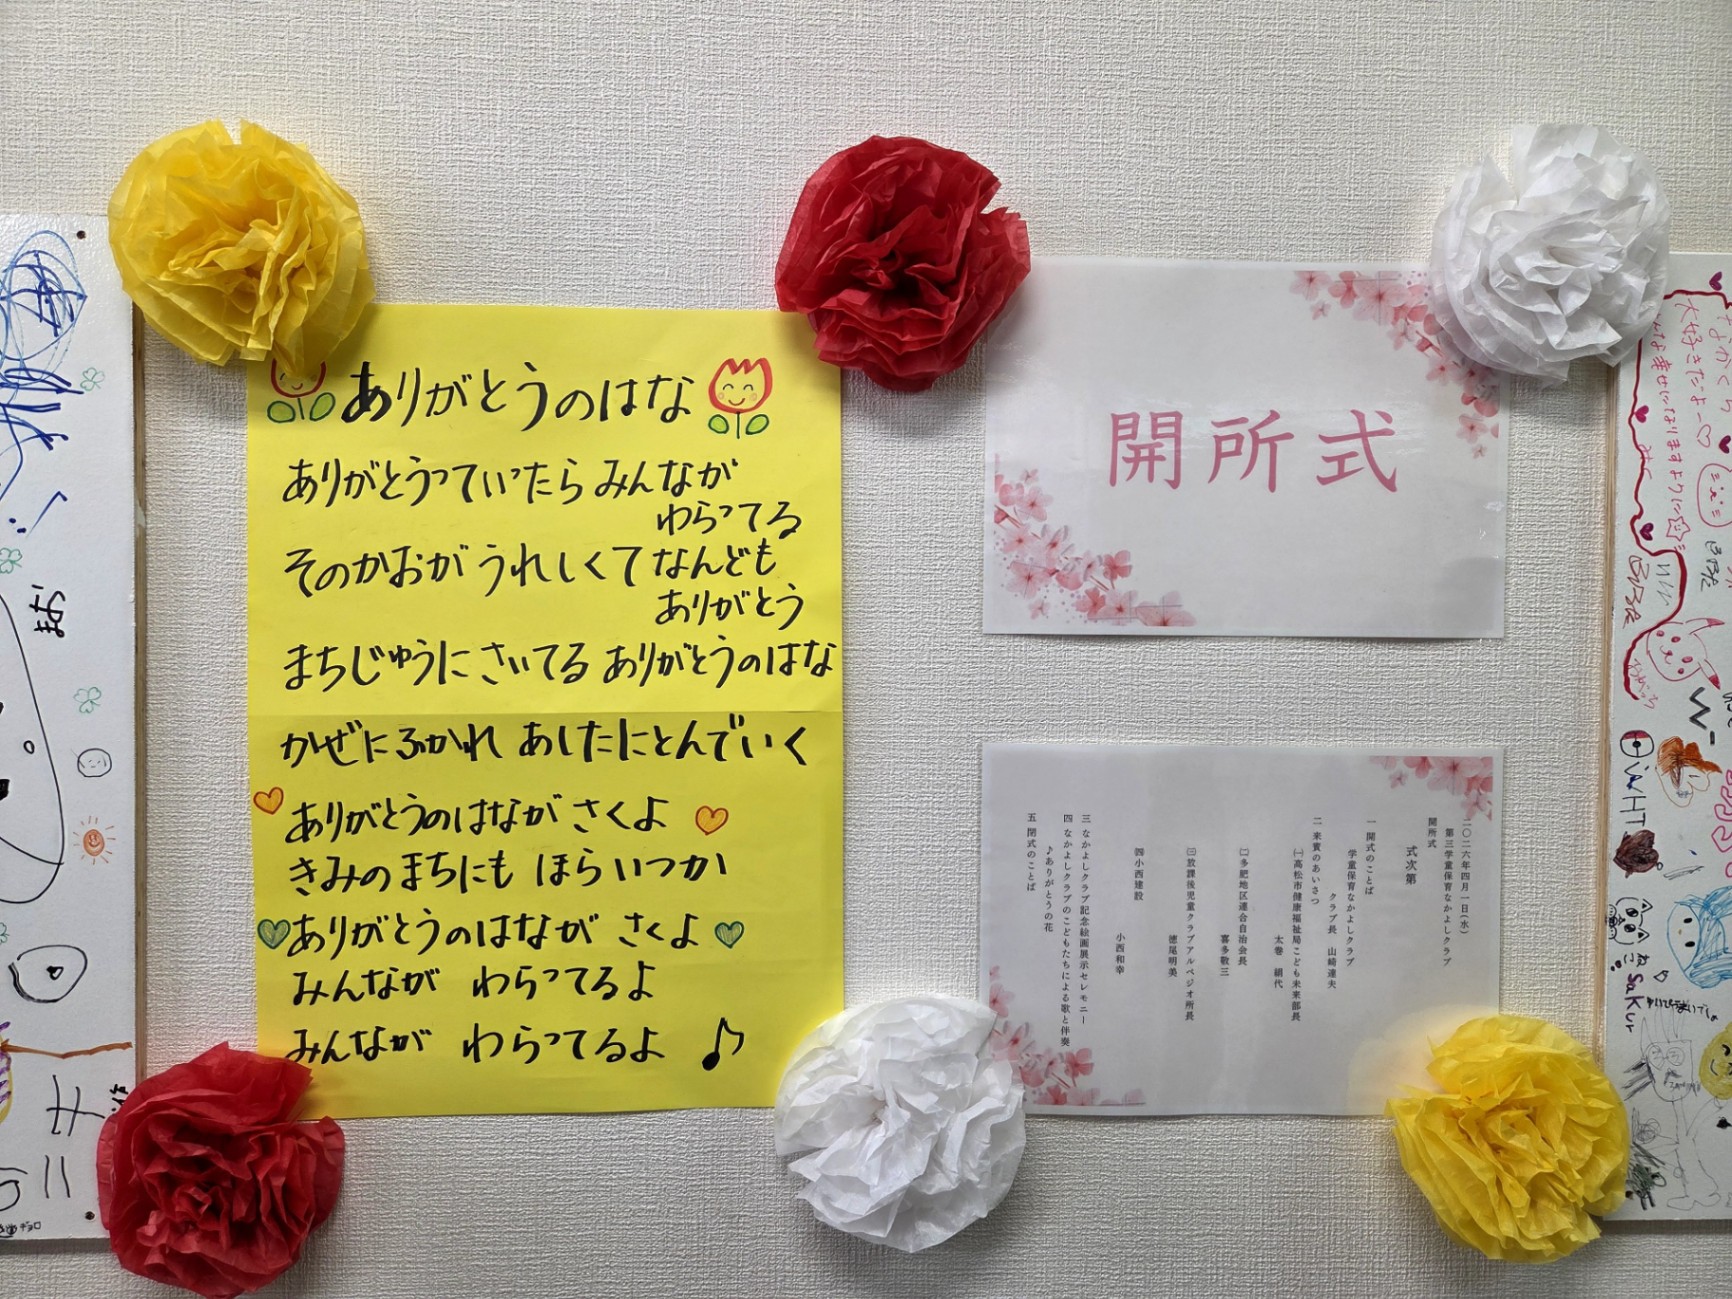 ありがとうのはな
ありがとうっていったら みんなが
わらってる
そのかおが うれしくて なんども
ありがとう
まちじゅうに さいてる ありがとうのはな
かぜにふかれ あしたにとんでいく
ありがとうのはなが さくよ
きみのまちにも ほら いつか
ありがとうのはなが さくよ
みんなが わらってるよ
みんなが わらってるよ
開所式
二〇二六年四月一日(水)
第三学童保育なかよしクラブ
開所式
式次第
一 開式のことば
学童保育なかよしクラブ
クラブ長 山崎達夫
二 来賓のあいさつ
㈠高松市健康福祉局こども未来部長
太巻 絹代
㈡多肥地区連合自治会長
喜多敬三
㈢放課後児童クラブアルペジオ所長
徳尾明美
㈣小西建設
小西和幸
三 なかよしクラブ記念絵画展示セレモニー
四 なかよしクラブのこどもたちによる歌と伴奏
♪ありがとうの花
五 閉式のことば
大好きだよー♡